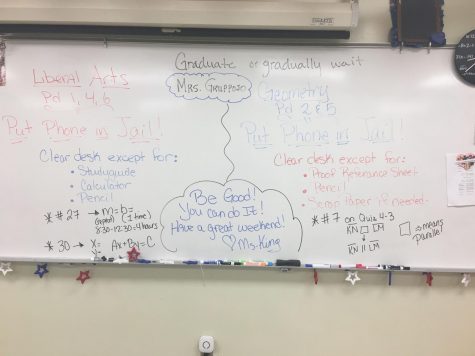 Graduate or gradually wait
Mrs. Grupposo
Liberal Arts
Pd 1, 4, 6
Put Phone in Jail!
Clear desk except for:
• Studyguide
• Calculator
• Pencil
* # 27 → m= b=
(1 time)
8:30-12:30=4 hours
* 30 → x=
Ax+By=C
Geometry
Pd 2 & 5
Put Phone in Jail!
Clear desk except for:
• Proof Reference Sheet
• Pencil
• Some Paper if needed
* # 7 on Quiz 4-3
KN □ LM
KN || LM
□ ⇒ means parallel
Be Good!
You can do it!
Have a great weekend!
♡ Ms. King